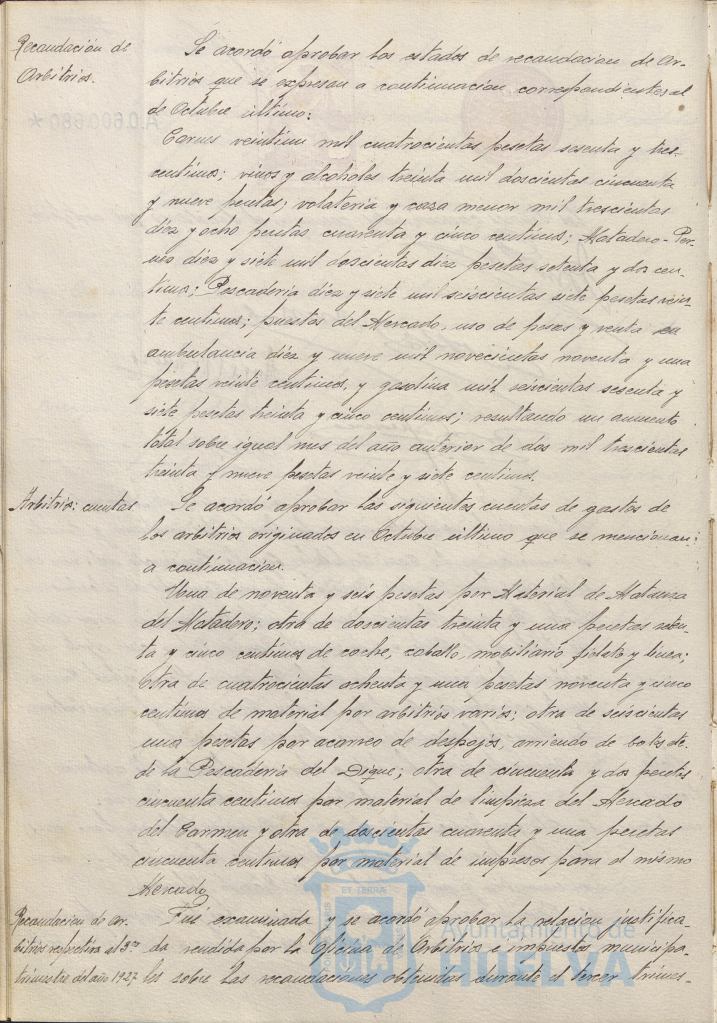 Recaudación de
Arbitrios.
Se acordó aprobar los estados de recaudacion de Ar-
bitrios que se expresan a continuacion correspondientes al
de Octubre último:
Carnes veintiun mil cuatrocientas pesetas sesenta y tres
centimos; vinos y alcoholes treinta mil doscientas cincuenta
y nueve pesetas; volateria y caza menor mil trescientas
diez y ocho pesetas cuarenta y cinco centimos; Matadero-Per-
neo diez y siete mil doscientas diez pesetas setenta y dos cen-
timos; Pescaderia diez y siete mil seiscientas siete pesetas vein-
te centimos; puestos del Mercado, uso de pesas y venta en
ambulancia diez y nueve mil novecientas noventa y una
pesetas veinte centimos, y gasolina mil seiscientas sesenta y
siete pesetas treinta y cinco centimos; resultando un aumento
total sobre igual mes del año anterior de dos mil trescientas
treinta y nueve pesetas veinte y siete centimos.
Arbitrios: cuentas
Se acordó aprobar las siguientes cuentas de gastos de
los arbitrios originados en Octubre último que se mencionan
a continuacion.
Una de noventa y seis pesetas por Material de Matanza
del Matadero; otra de doscientas treinta y una pesetas
ta y cinco centimos de coche, caballo, mobiliario fielato y linea;
otra de cuatrocientas ochenta y una pesetas noventa y cinco
centimos de material por arbitrios varios; otra de seiscientas
una pesetas por acarreo de despojos, arriendo de botes de
de la Pescaderia del Dique; otra de cincuenta y dos pesetas
cincuenta centimos por material de limpieza del Mercado
del Carmen y otra de doscientas cuarenta y una pesetas
cincuenta centimos por material de impresos para el mismo
Mercado.
Recaudacion de Ar-
bitrios respectiva al 3er
trimestre del año 1927
Fué examinada y se acordó aprobar la relacion justifica-
da rendida por la Oficina de Arbitrios e impuestos municipa-
les sobre las recaudaciones obtenidas durante el tercer trimes-
A.0.600.680*
Ayuntamiento de
HUELVA